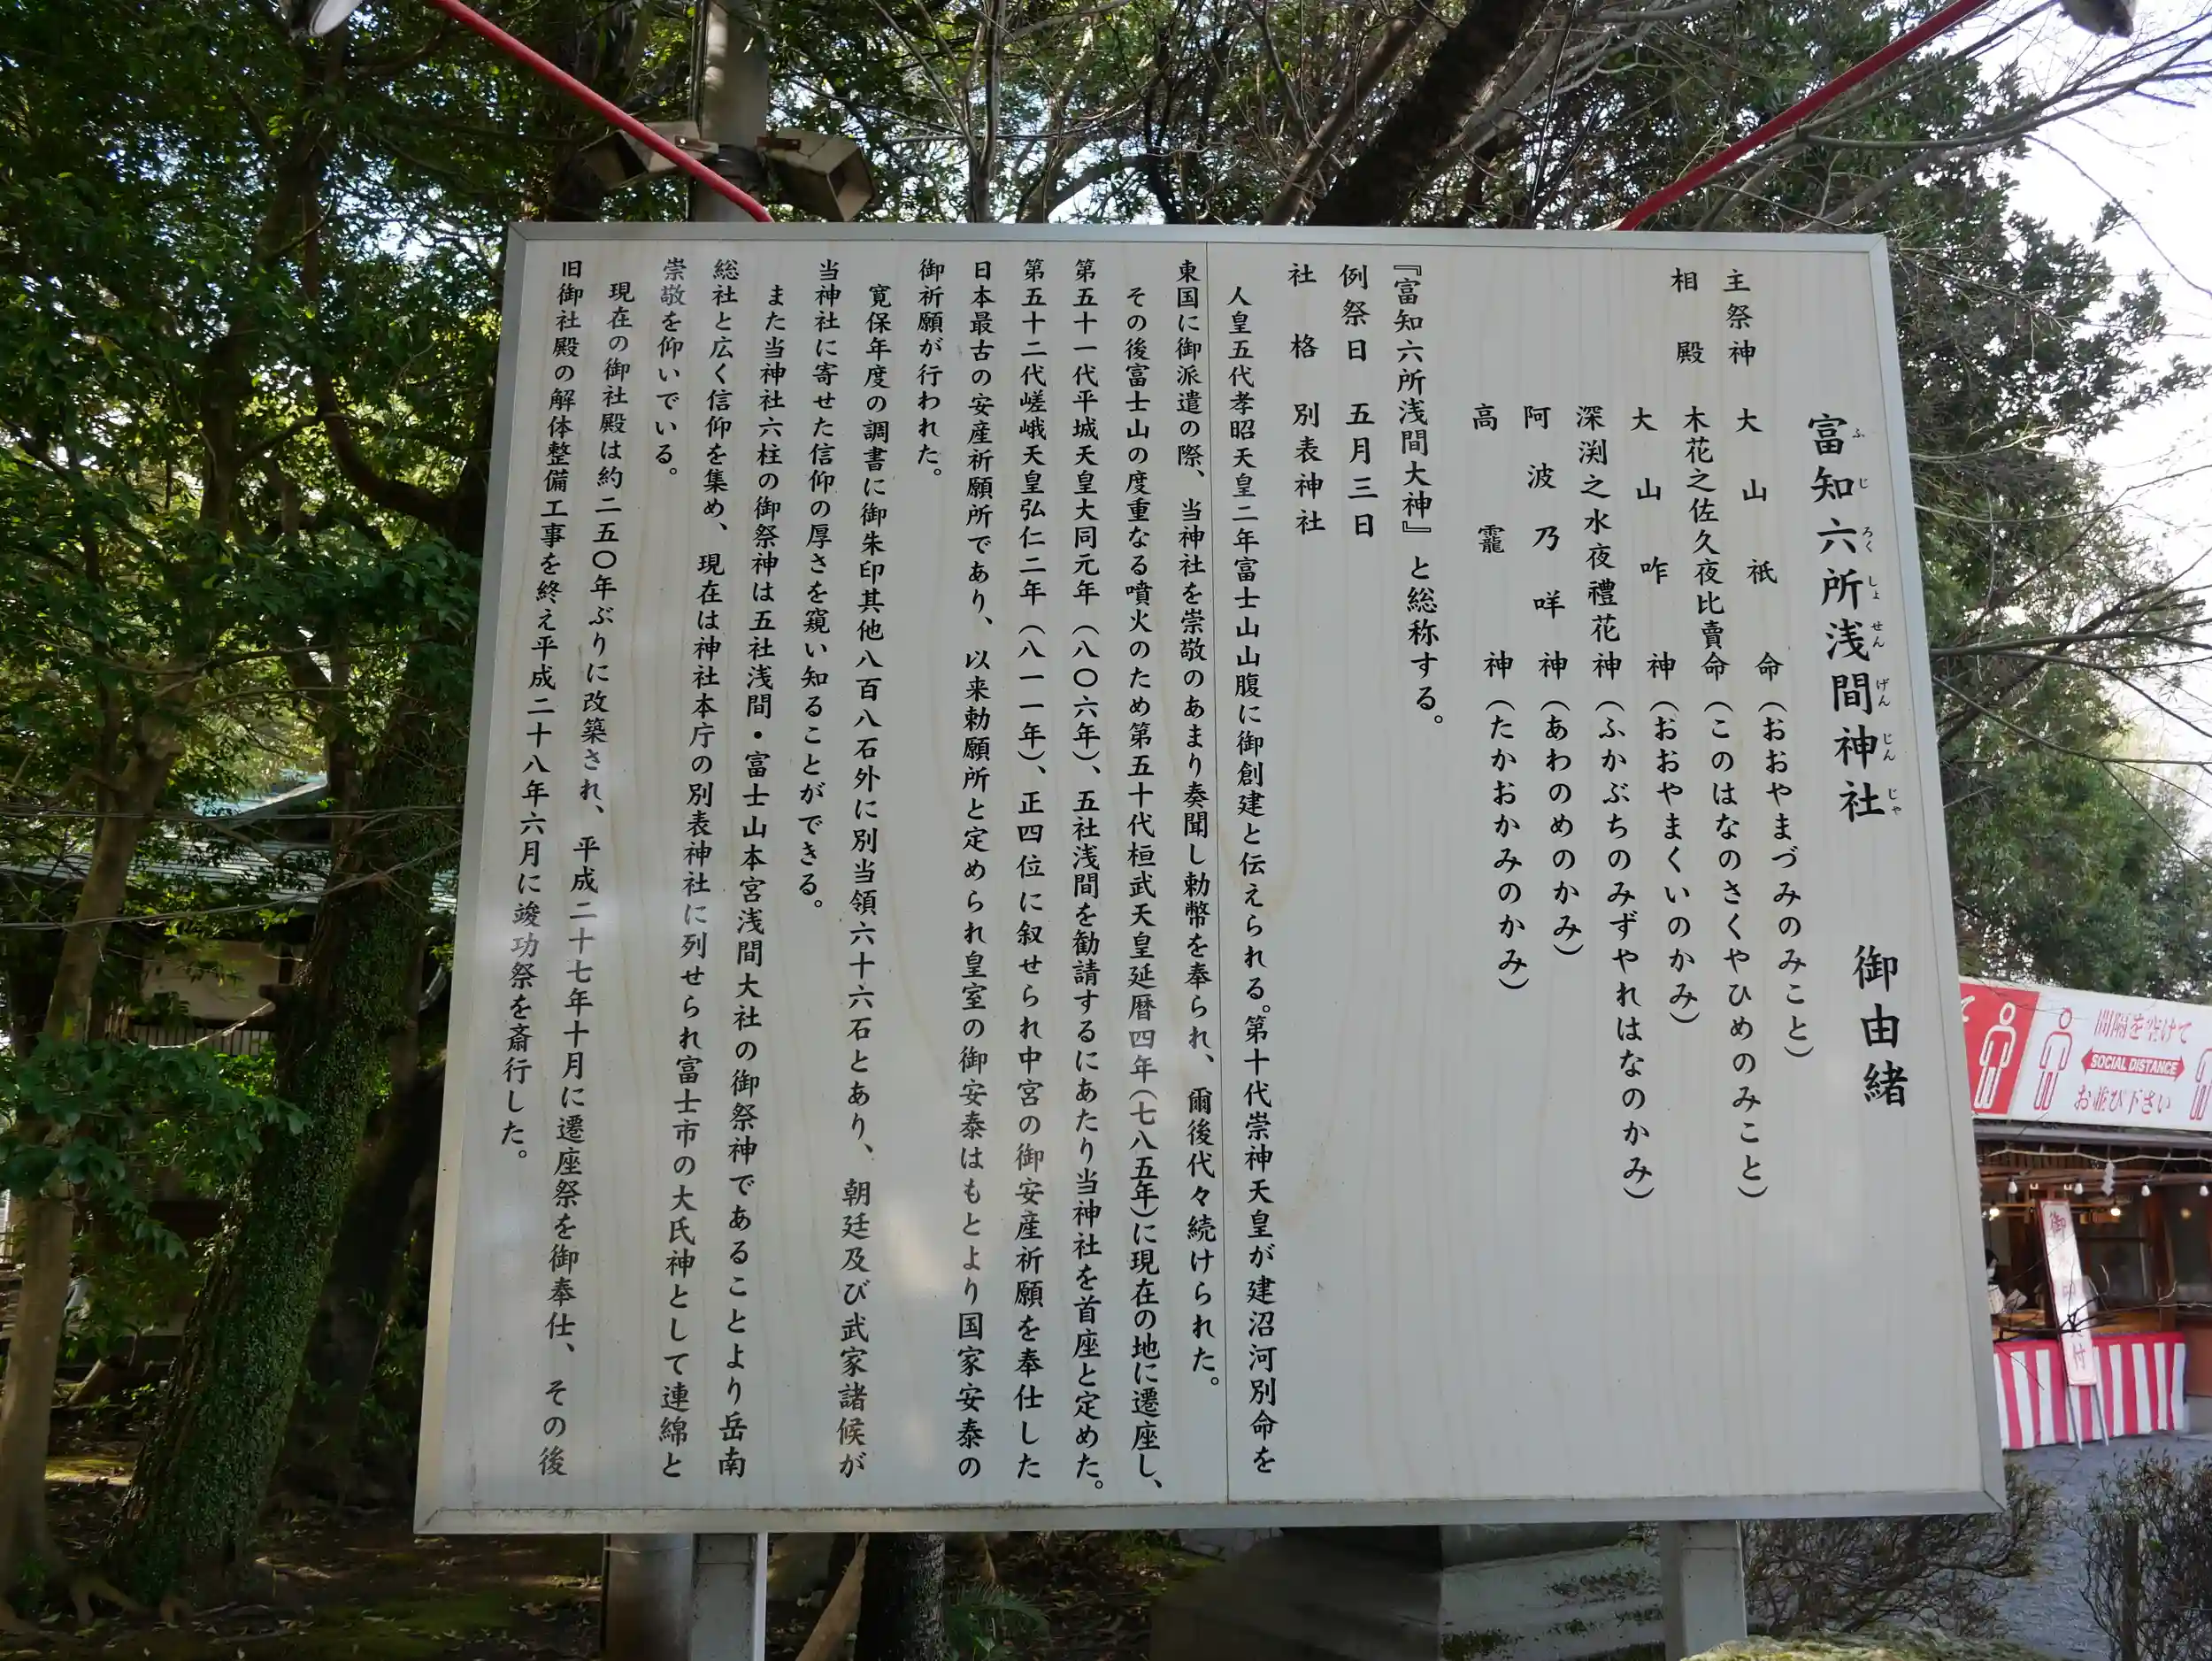 富知六所浅間神社　御由緒
ふじろくしょせんげんじんじゃ
主祭神　大山祇命（おおやまづみのみこと）
相殿　木花之佐久夜比賣命（このはなのさくやひめのみこと）
大山咋神（おおやまくいのかみ）
深渕之水夜禮花神（ふかぶちのみずやれはなのかみ）
阿波乃咩神（あわのめのかみ）
高龗神（たかおかみのかみ）
『富知六所浅間大神』と総称する。
例祭日　五月三日
社格　別表神社
人皇五代孝昭天皇二年富士山山腹に御創建と伝えられる。第十代崇神天皇が建沼河別命を
東国に御派遣の際、当神社を崇敬のあまり奏聞し勅幣を奉られ、爾後代々続けられた。
その後富士山の度重なる噴火のため第五十代桓武天皇延暦四年（七八五年）に現在の地に遷座し、
第五十一代平城天皇大同元年（八〇六年）、五社浅間を勧請するにあたり当神社を首座と定めた。
第五十二代嵯峨天皇弘仁二年（八一一年）、正四位に叙せられ中宮の御安産祈願を奉仕した
日本最古の安産祈願所であり、以来勅願所と定められ皇室の御安泰はもとより国家安泰の
御祈願が行われた。
寛保年度の調書に御朱印其他八百八石外に別当領六十六石とあり、朝廷及び武家諸候が
当神社に寄せた信仰の厚さを窺い知ることができる。
また当神社六柱の御祭神は五社浅間・富士山本宮浅間大社の御祭神であることより岳南
総社と広く信仰を集め、現在は神社本庁の別表神社に列せられ富士市の大氏神として連綿と
崇敬を仰いでいる。
現在の御社殿は約二五〇年ぶりに改築され、平成二十七年十月に遷座祭を御奉仕、その後
旧御社殿の解体整備工事を終え平成二十八年六月に竣功祭を斎行した。
て
間隔を空けて
SOCIAL DISTANCE
お並び下さい